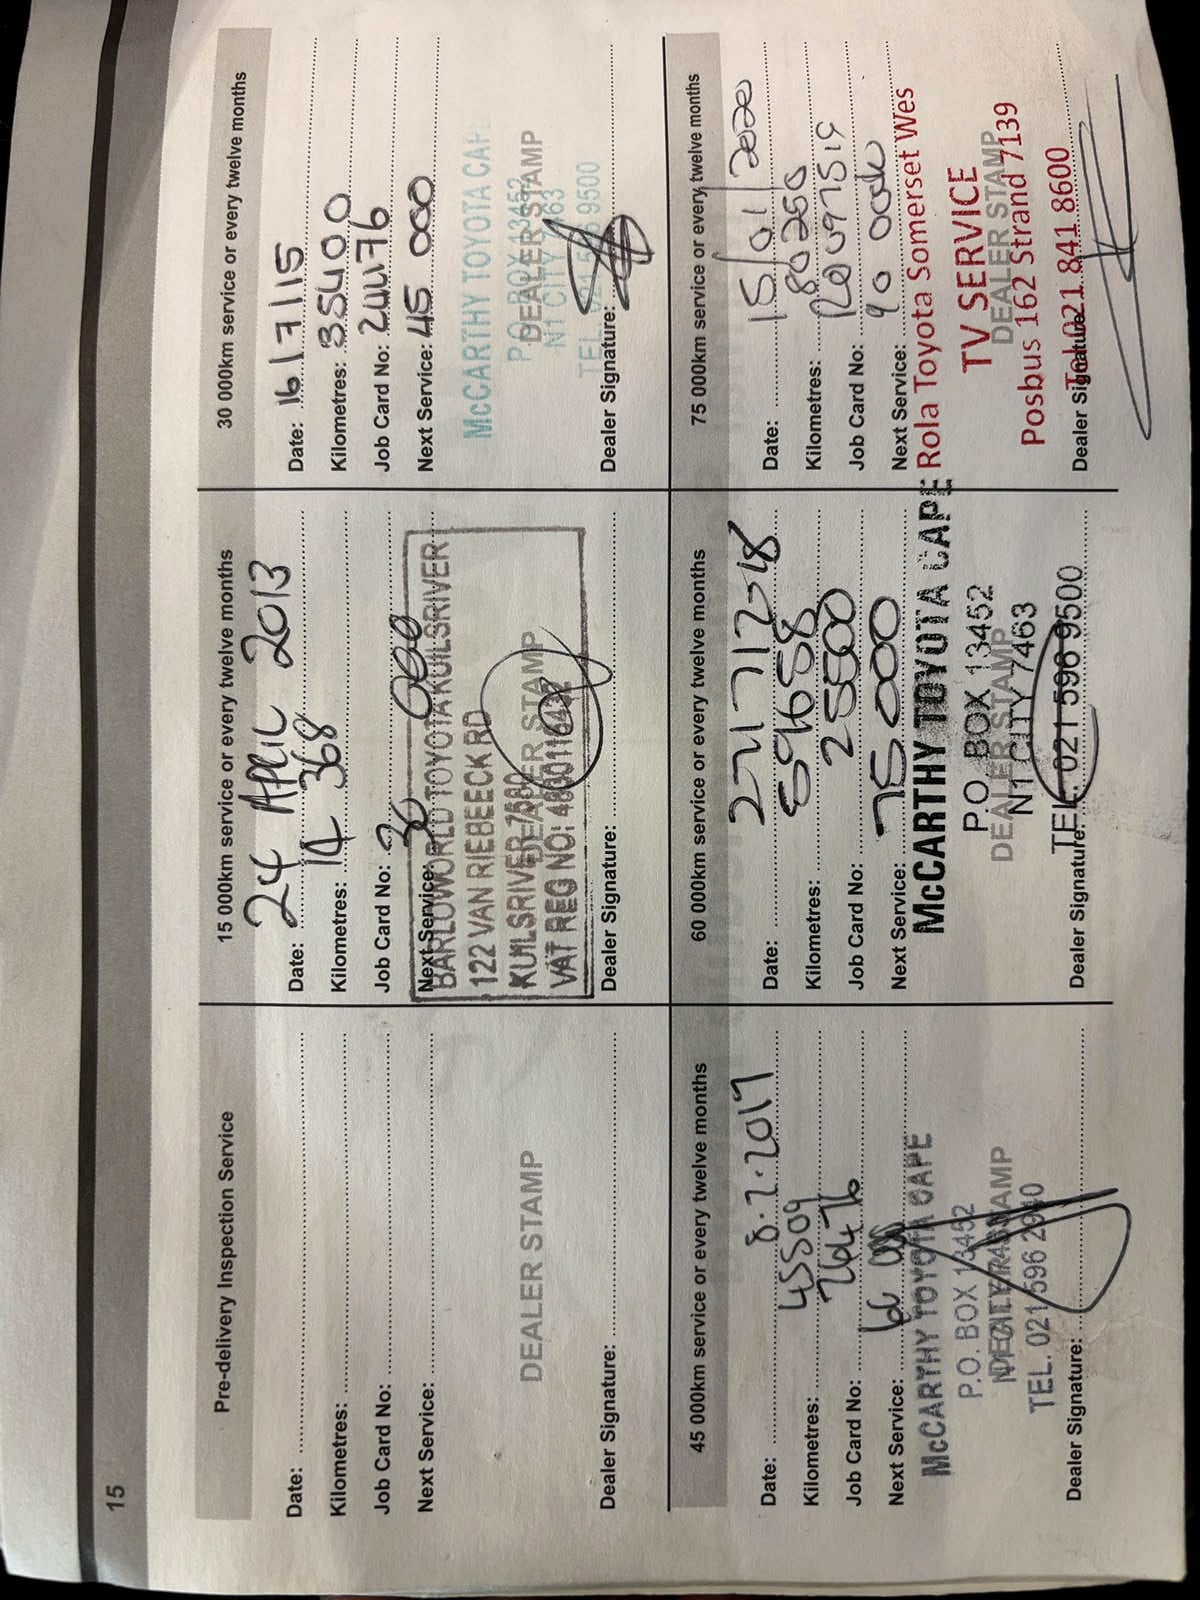 15
Pre-delivery Inspection Service
Date:
Kilometres:
Job Card No:
Next Service:
DEALER STAMP
Dealer Signature:
15 000km service or every twelve months
Date: 24 APRIL 2013
Kilometres: 14 368
Job Card No:
Next Service: 30 000
BARLOWORLD TOYOTA KUILSRIVER
122 VAN RIEBEECK RD
KUILSRIVER 7580
DEALER STAMP
VAT REG NO:
Dealer Signature:
30 000km service or every twelve months
Date: 16/7/15
Kilometres: 35400
Job Card No:
Next Service: 45 000
McCARTHY TOYOTA CAPE
P.O. BOX 13452
DEALER STAMP
N1 CITY 7463
TEL. 021 596 9500
Dealer Signature:
45 000km service or every twelve months
Date: 8.2.2017
Kilometres: 45509
Job Card No: 26476
Next Service:
McCARTHY TOYOTA CAPE
P.O. BOX 13452
DEALER STAMP
TEL. 021 596
Dealer Signature:
60 000km service or every twelve months
Date:
Kilometres: 59658
Job Card No: 25500
Next Service: 75 000
McCARTHY TOYOTA CAPE
P.O. BOX 13452
DEALER STAMP
N1 CITY 7463
TEL: 021 596 9500
Dealer Signature:
75 000km service or every twelve months
Date: 15/01/2020
Kilometres: 80250
Job Card No:
Next Service: 90 000
Rola Toyota Somerset Wes
TV SERVICE
DEALER STAMP
Posbus 162 Strand 7139
Tel 021 841 8600
Dealer Signature: